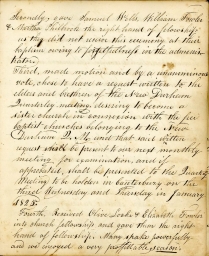 Secondly, gave Samuel Wells, William Fowler
& Martha Philbrick the right hand of fellowship
as they did not receive this ceremony at their
baptism owing to forgetfulness in the adminis-
trator.
Third, made motion and by a unanimous
vote, chose to have a request written to the
Elder and brethren of the New Durham
Quarterly meeting, desiring to become a
sister church in connexion with the free
baptist churches belonging to the New
Durham Q. M. and that said written
request shall be present to our next monthly
meeting, for examination, and if
approbated, shall be presented to the Quarterly
Meeting to be holden in Canterbury on the
third Wednesday and Thursday in January
1835.
Fourth, Received Olive Locke & Elizabeth Fowler
into church fellowship and gave them the right
hand of fellowship. Many spake powerfully
and we enjoyed a very profitable season.